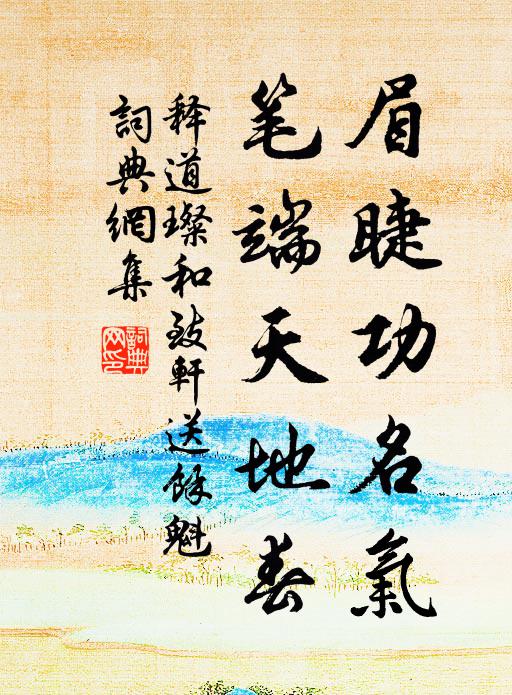 眉睫功名氣
笔端天地春
释道璨和致軒送馀魁
詞典網集
詞典
网印